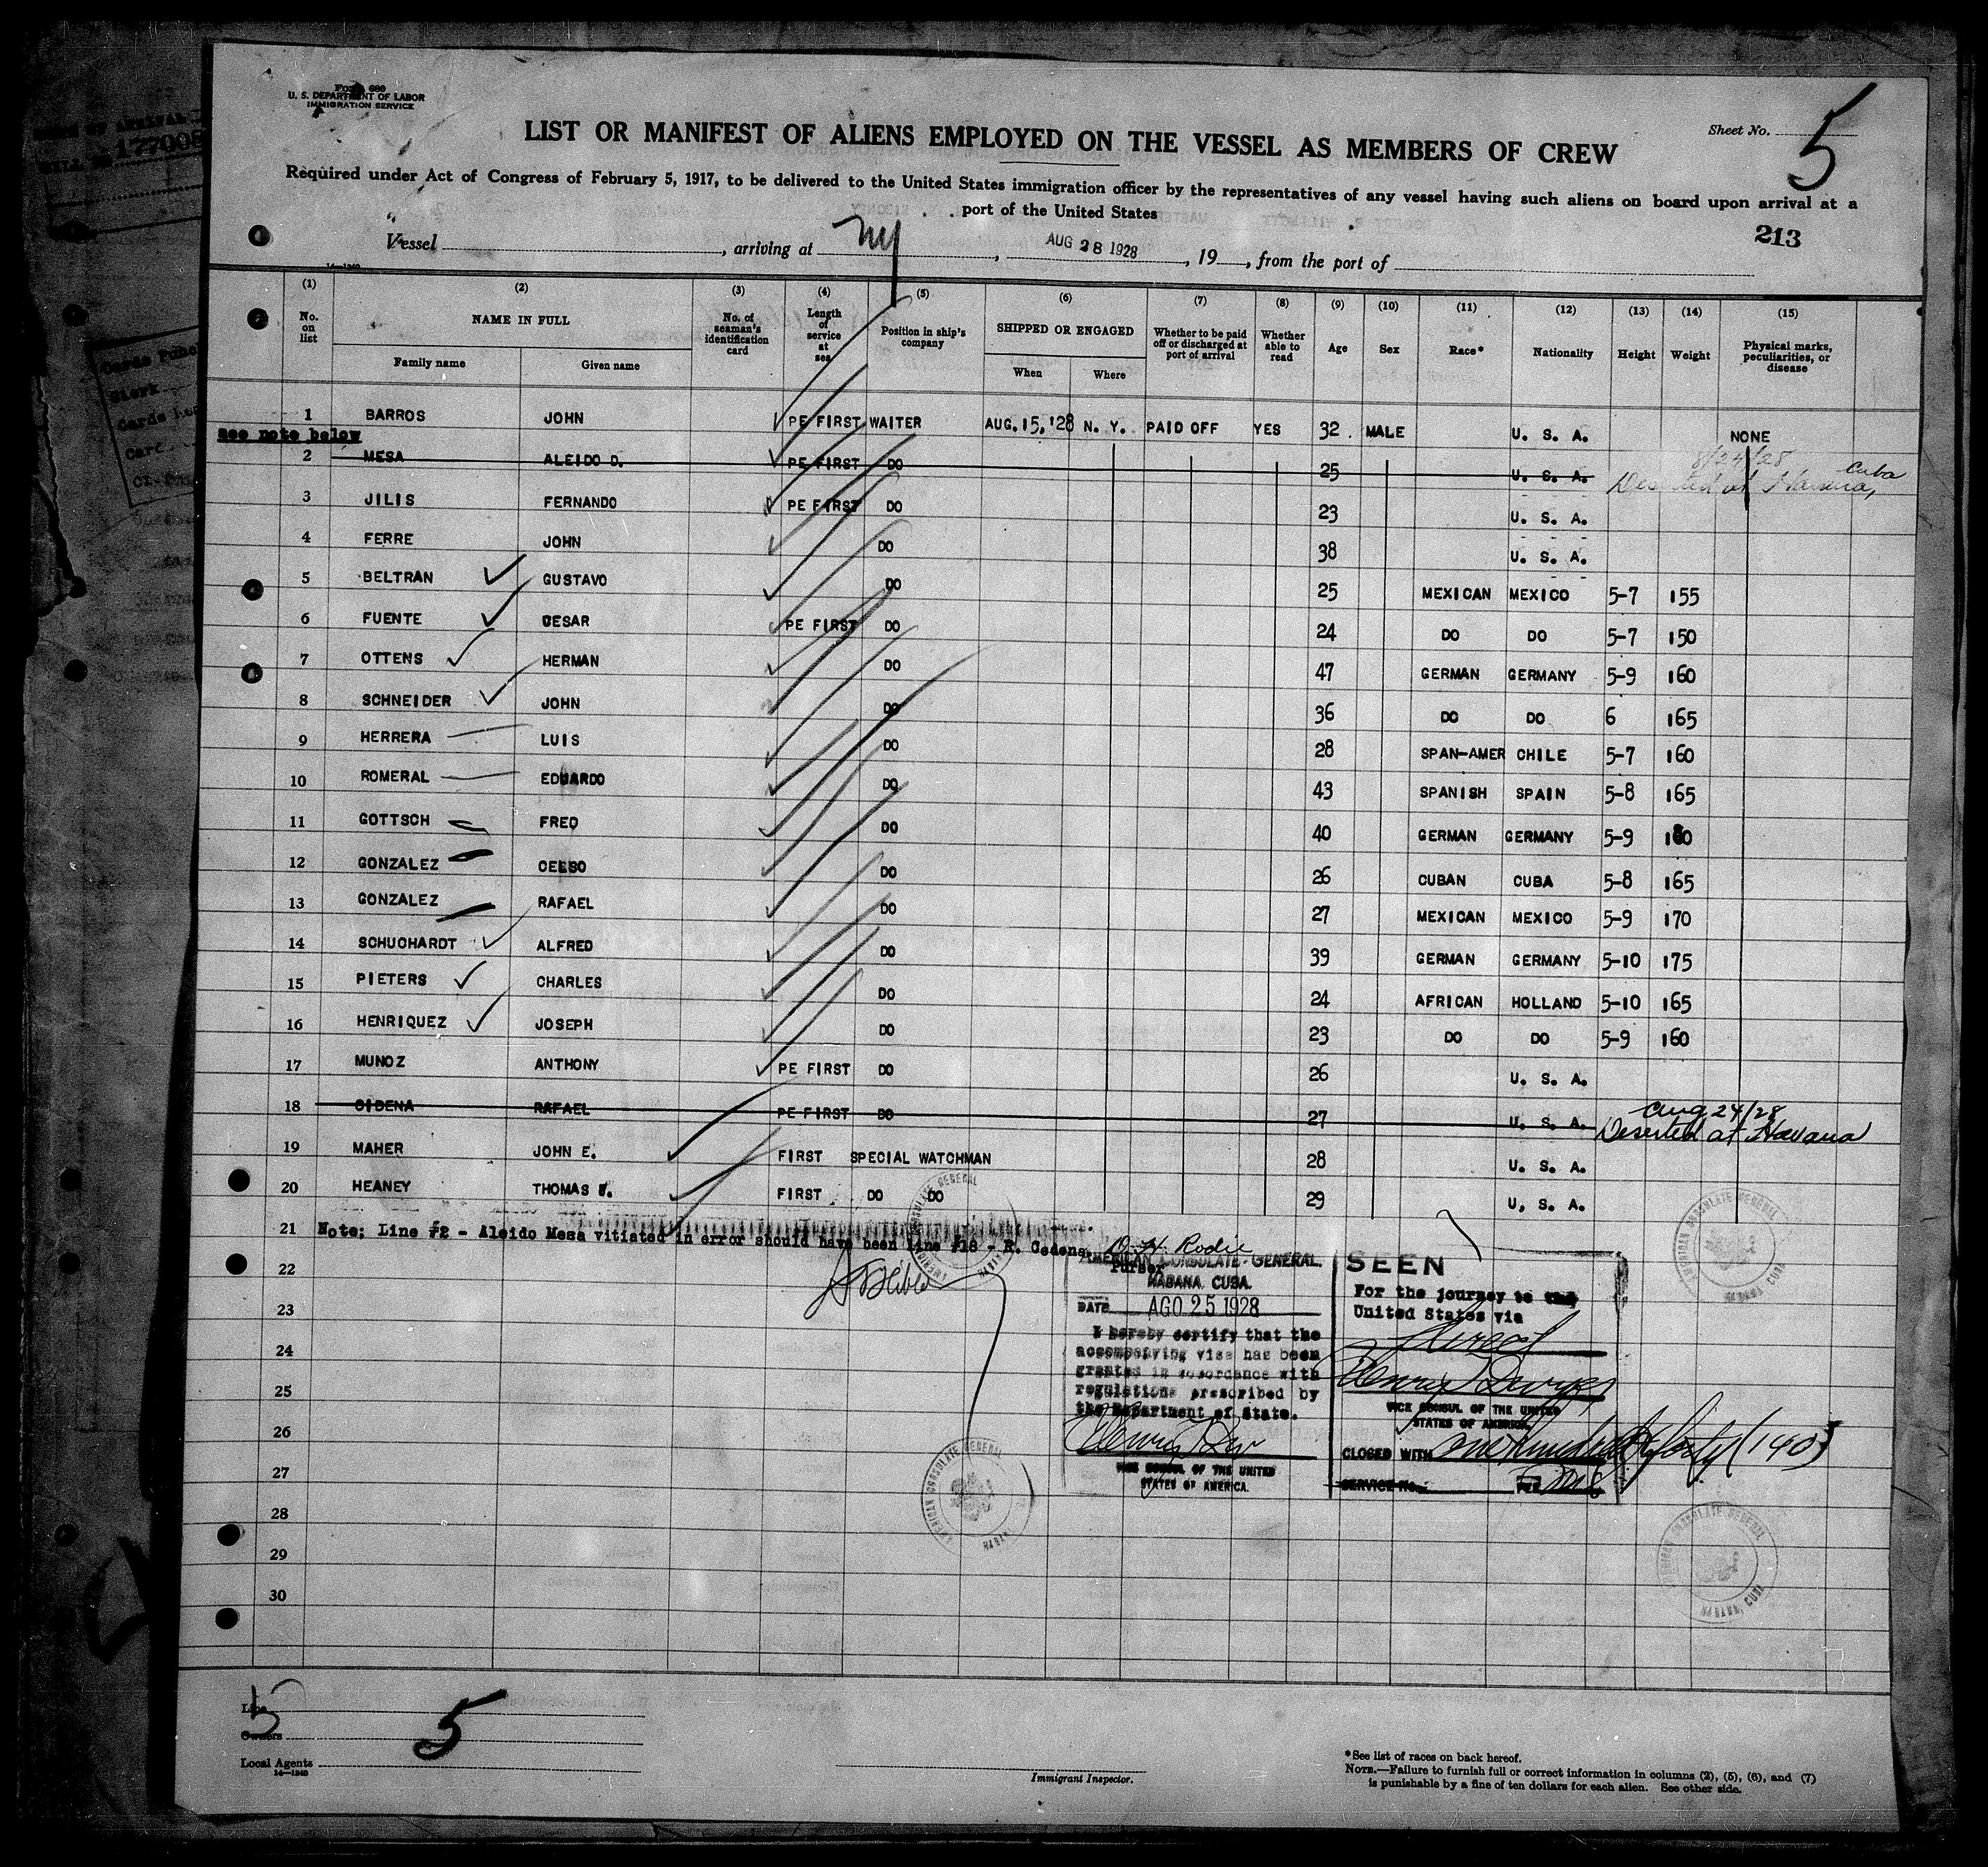 Form 680
U. S. DEPARTMENT OF LABOR
IMMIGRATION SERVICE
Sheet No. 5
LIST OR MANIFEST OF ALIENS EMPLOYED ON THE VESSEL AS MEMBERS OF CREW
Required under Act of Congress of February 5, 1917, to be delivered to the United States immigration officer by the representatives of any vessel having such aliens on board upon arrival at a
port of the United States
213
Vessel , arriving at NY , AUG 28 1928 , 19 , from the port of
14-1240
(1) (2) (3) (4) (5) (6) (7) (8) (9) (10) (11) (12) (13) (14) (15)
No. on list NAME IN FULL Family name Given name No. of seaman's identification card Length of service at sea Position in ship's company SHIPPED OR ENGAGED When Where Whether to be paid off or discharged at port of arrival Whether able to read Age Sex Race* Nationality Height Weight Physical marks, peculiarities, or disease
1 BARROS JOHN PE FIRST WAITER AUG. 15, '28 N. Y. PAID OFF YES 32 MALE U. S. A. NONE
see note below
2 MESA ALEIDO D. PE FIRST DO 25 U. S. A. 8/24/28 Deserted at Havana, Cuba
3 JILIS FERNANDO PE FIRST DO 23 U. S. A.
4 FERRE JOHN DO 38 U. S. A.
5 BELTRAN GUSTAVO DO 25 MEXICAN MEXICO 5-7 155
6 FUENTE CESAR PE FIRST DO 24 DO DO 5-7 150
7 OTTENS HERMAN DO 47 GERMAN GERMANY 5-9 160
8 SCHNEIDER JOHN DO 36 DO DO 6 165
9 HERRERA LUIS DO 28 SPAN-AMER CHILE 5-7 160
10 ROMERAL EDUARDO DO 43 SPANISH SPAIN 5-8 165
11 GOTTSCH FRED DO 40 GERMAN GERMANY 5-9 180
12 GONZALEZ CELSO DO 26 CUBAN CUBA 5-8 165
13 GONZALEZ RAFAEL DO 27 MEXICAN MEXICO 5-9 170
14 SCHUCHARDT ALFRED DO 39 GERMAN GERMANY 5-10 175
15 PIETERS CHARLES DO 24 AFRICAN HOLLAND 5-10 165
16 HENRIQUEZ JOSEPH DO 23 DO DO 5-9 160
17 MUNOZ ANTHONY PE FIRST DO 26 U. S. A.
18 CIDENA RAFAEL PE FIRST DO 27 U. S. A. Aug 24/28 Deserted at Havana
19 MAHER JOHN E. FIRST SPECIAL WATCHMAN 28 U. S. A.
20 HEANEY THOMAS FIRST DO DO 29 U. S. A.
21 Note: Line #2 - Aleido Mesa vitiated in error should have been line #18 - R. Cedena.
D. H. Rodie
Purser
22
23
24
25
26
27
28
29
30
AMERICAN CONSULATE GENERAL.
HABANA, CUBA.
DATE AGO 25 1928
I hereby certify that the
accompanying visa has been
granted in accordance with
regulations prescribed by
the Department of State.
VICE CONSUL OF THE UNITED
STATES OF AMERICA.
SEEN
For the journey to the
United States via
direct
VICE CONSUL OF THE UNITED
STATES OF AMERICA
CLOSED WITH one hundred & forty (140)
SERVICE No.
AMERICAN CONSULATE GENERAL HABANA, CUBA
AMERICAN CONSULATE GENERAL HABANA, CUBA
AMERICAN CONSULATE GENERAL HABANA
AMERICAN CONSULATE GENERAL HABANA, CUBA
Line
5
5
Owners
Local Agents
14-1240
Immigrant Inspector.
*See list of races on back hereof.
NOTE.—Failure to furnish full or correct information in columns (2), (5), (6), and (7)
is punishable by a fine of ten dollars for each alien. See other side.